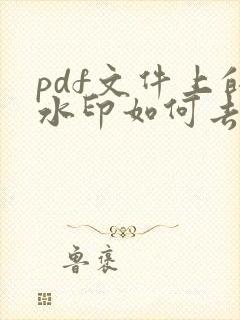 pdf文件上的
水印如何去
鲁褒